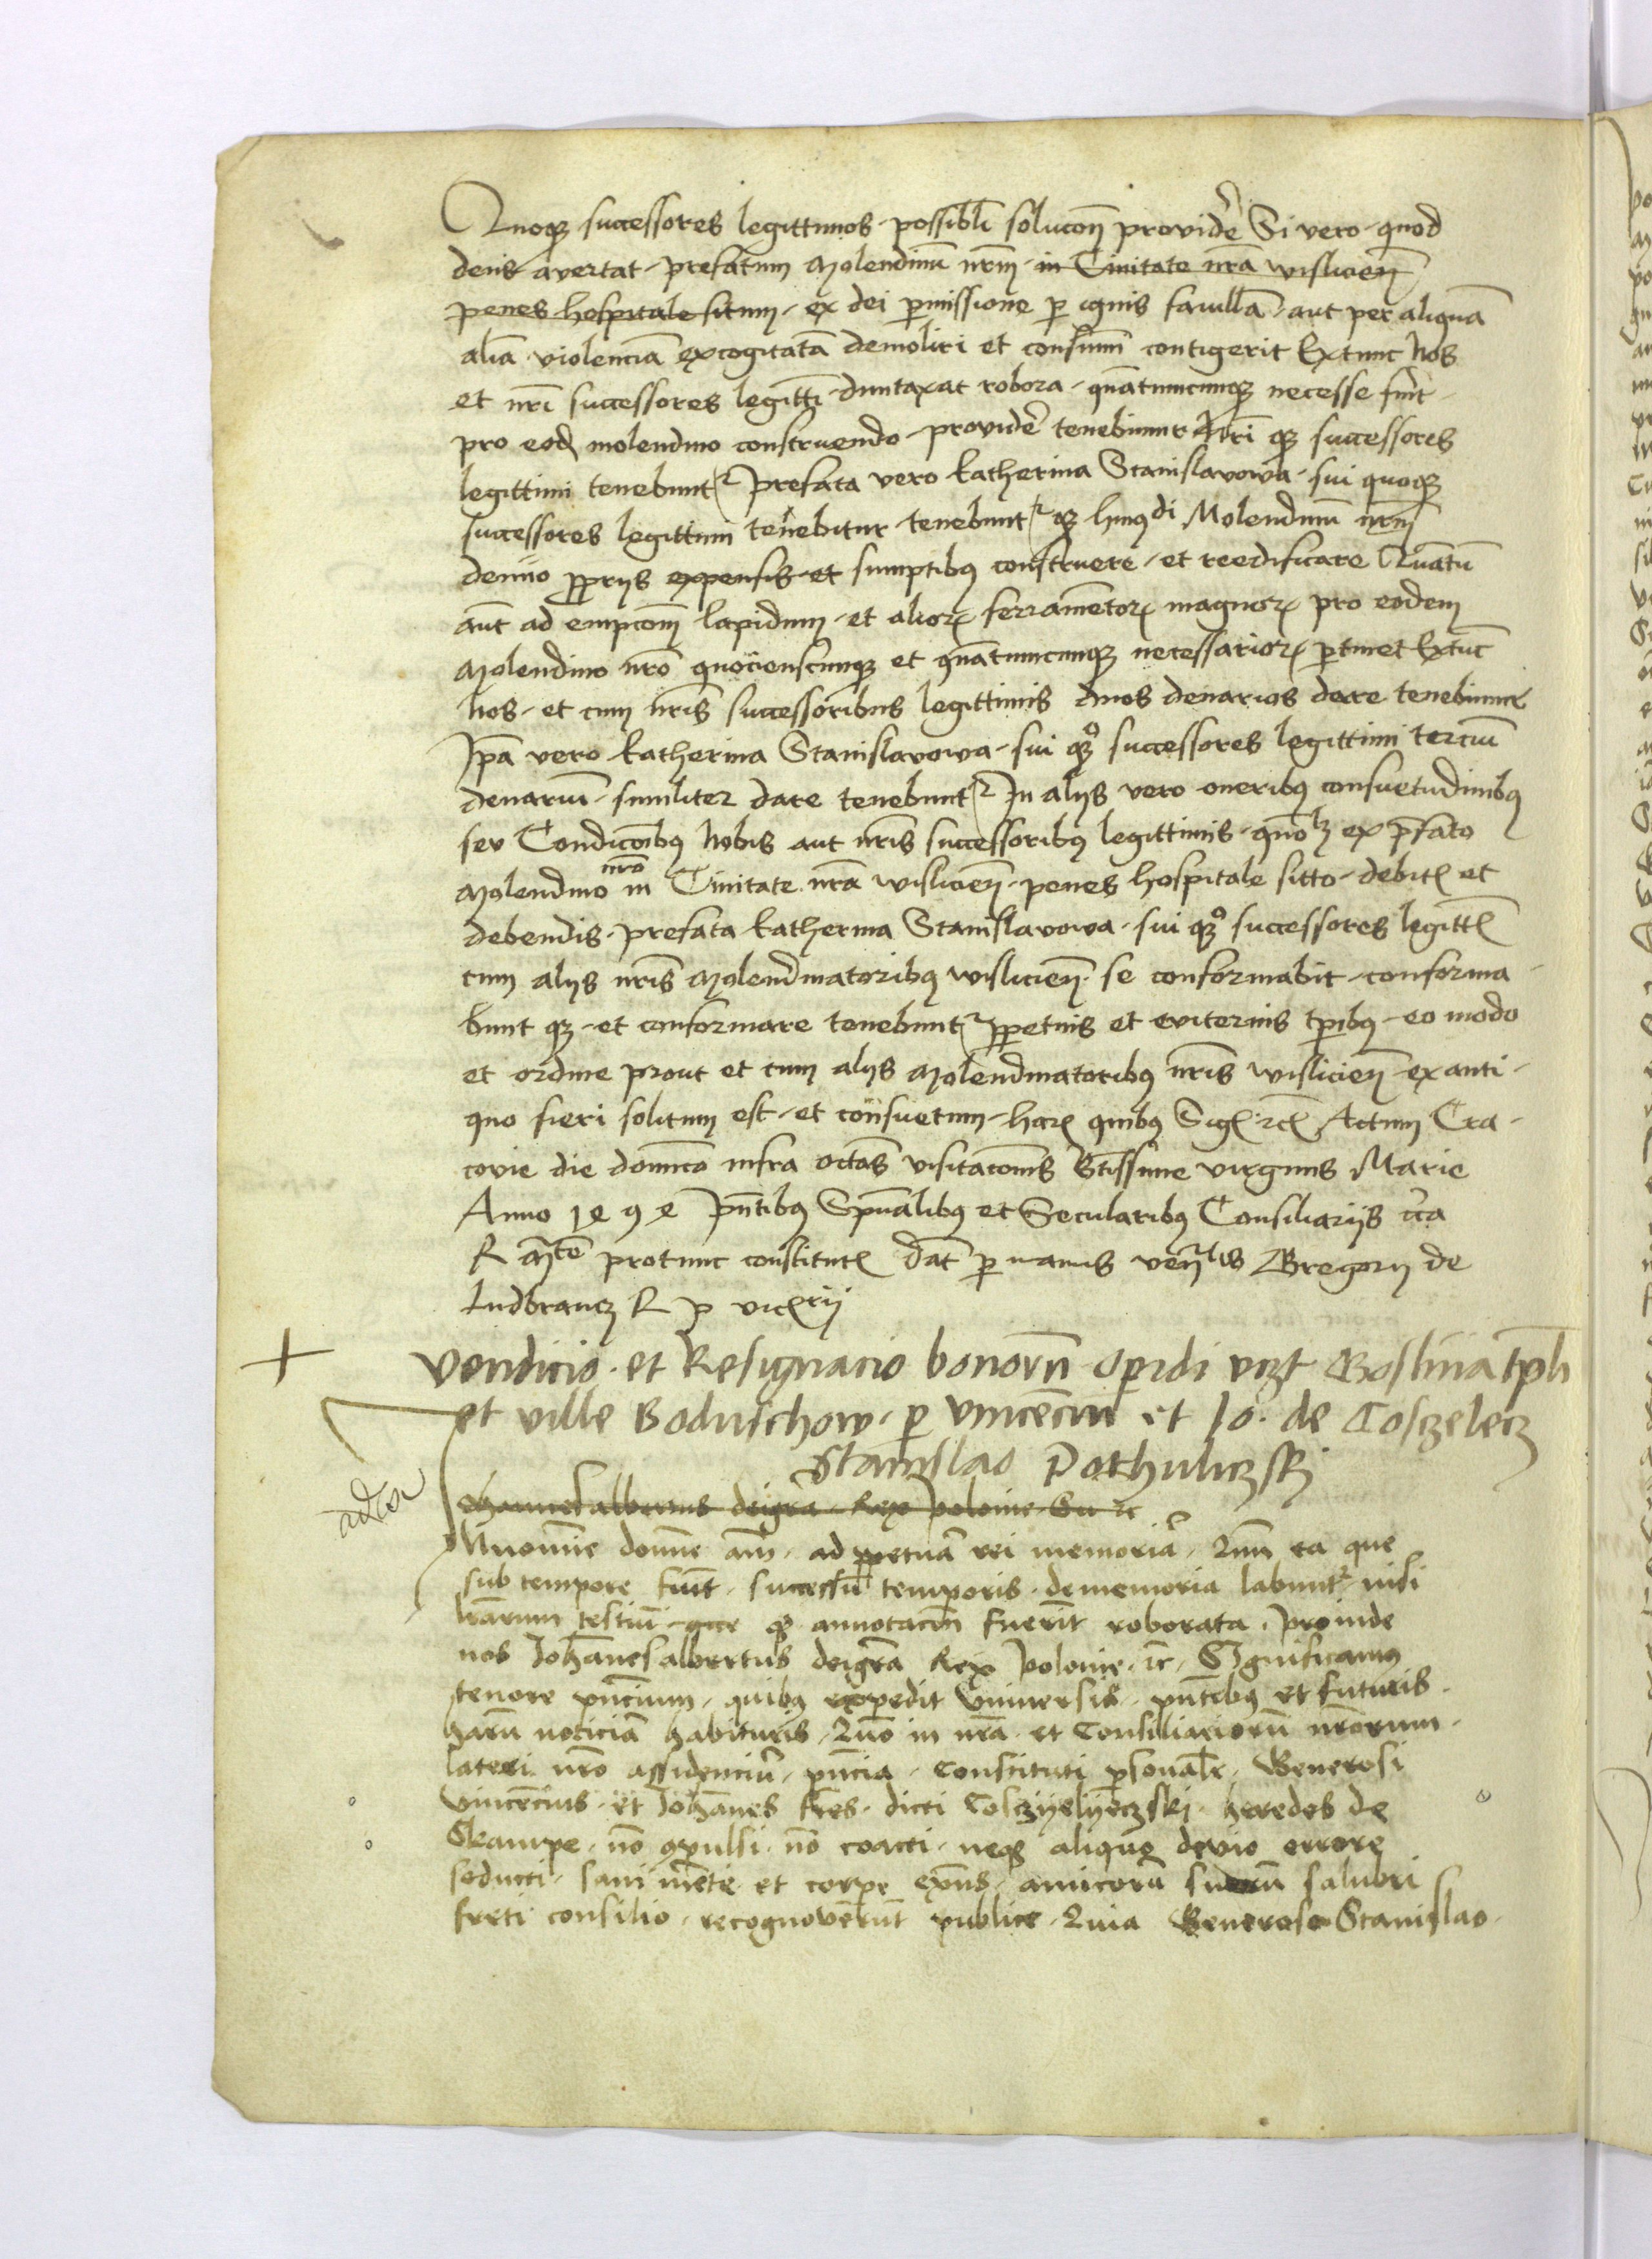 Quoqȝ successores legittimos possibłi solucoñ providẽ Si vero quod
deus avertat prefatum Molendinũ nrm̃ in Civitate nrã Wislicieñ
penes hospitale situm ex dei pmissione p ignis favillã aut per aliquã
aliã violenciã excogitatã demoliri et consumi contigerit Extunc Nos
et nrĩ successores legittĩ duntaxat robora quãtumcumqȝ necesse fuit
pro eod molendino construendo providẽ tenebimur Nrĩ qȝ successores
legittimi tenebuntr Prefata vero Katherina Stanislavowa sui quoqȝ
successores legittimi tenebitur tenebuntr qȝ hmoi di Molendinũ nrm̃
denuo pprys expensis et sumptibus construere et reedificare Quãtũ
aũt ad empcoñ lapidum et alior ferramẽtor magnor pro eodem
Molendino nrõ quociensscumqȝ et quãtumcumqȝ necessarior ptinet Extũc
Nos et cum nrĩs successoribus legittimis duos denarios dare tenebimur
Ipã vero Katherina Stanislavowa sui qȝ successores legittimi terciũ
denariũ similiter dare tenebuntr In alys vero oneribus consuetudinibus
seu Condicõibus Nobis aut nrĩs successoribus legittimis quõlȝ ex pfato
Molendino nrõ in Civitate nrã Wislicieñ penes hospitale sitto debit et
debendis prefata Katherina Stanislavowa sui qȝ successores legitt
cum alys nrĩs Molendinatoribus Wislicieñ se conformabit conforma
bunt qȝ et conformare tenebuntr ppetuis et eviternis tpibus eo modo
et ordine prout et cum alys Molendinatoribus nrĩs Wislicieñ ex anti
quo fieri solitum est et consuetum har quibus Sig etc Actum Cra
covie die dominico infra octas visitacõnis Btissime virginis Marie
Anno 1494 Pñtibus Spũalibus et Secularibus Consiliariis cca
R Mtẽ protunc constitut Dat p manus veñlis Gregory de
Ludbrancz R P vicry
Vendicio et Resignacio bonorũ opidi vzt Goslina tpli
et ville Boduschow p Vincẽciũ et Jo. de Cosczelecz
Stanislao Pothuliczski
Johannes albertus dei grã Rex Polonie etc
In nomine domine amẽ ad ppetuã rei memoriã Quũ ea que
sub tempore fiũt successũ temporis de memoria labuntr nisi
lrãrum testiũ qȝ annotacoñ fuerĩt roborata proinde
nos Johãnes albertus dei grã Rex Polonie etc Significamus
tenore pñcium quibus expedit Universis pñtibus et futuris
harũ noticiã habituris Quõ in nrã et Consiliariorũ nrõrum
lateri nrõ assidenciũ pñcia Constituti psonalr Generosi
Vincẽcius et Johãnes frẽs dicti Cosczyelyeczski heredes de
Skampe nõ cpulsi nõ coacti neqȝ aliquo devio errore
seducti sani mẽte et corpe existẽs amicorũ suorũ salubri
freti consilio recognoverũt publice Quia Generoso Stanislao